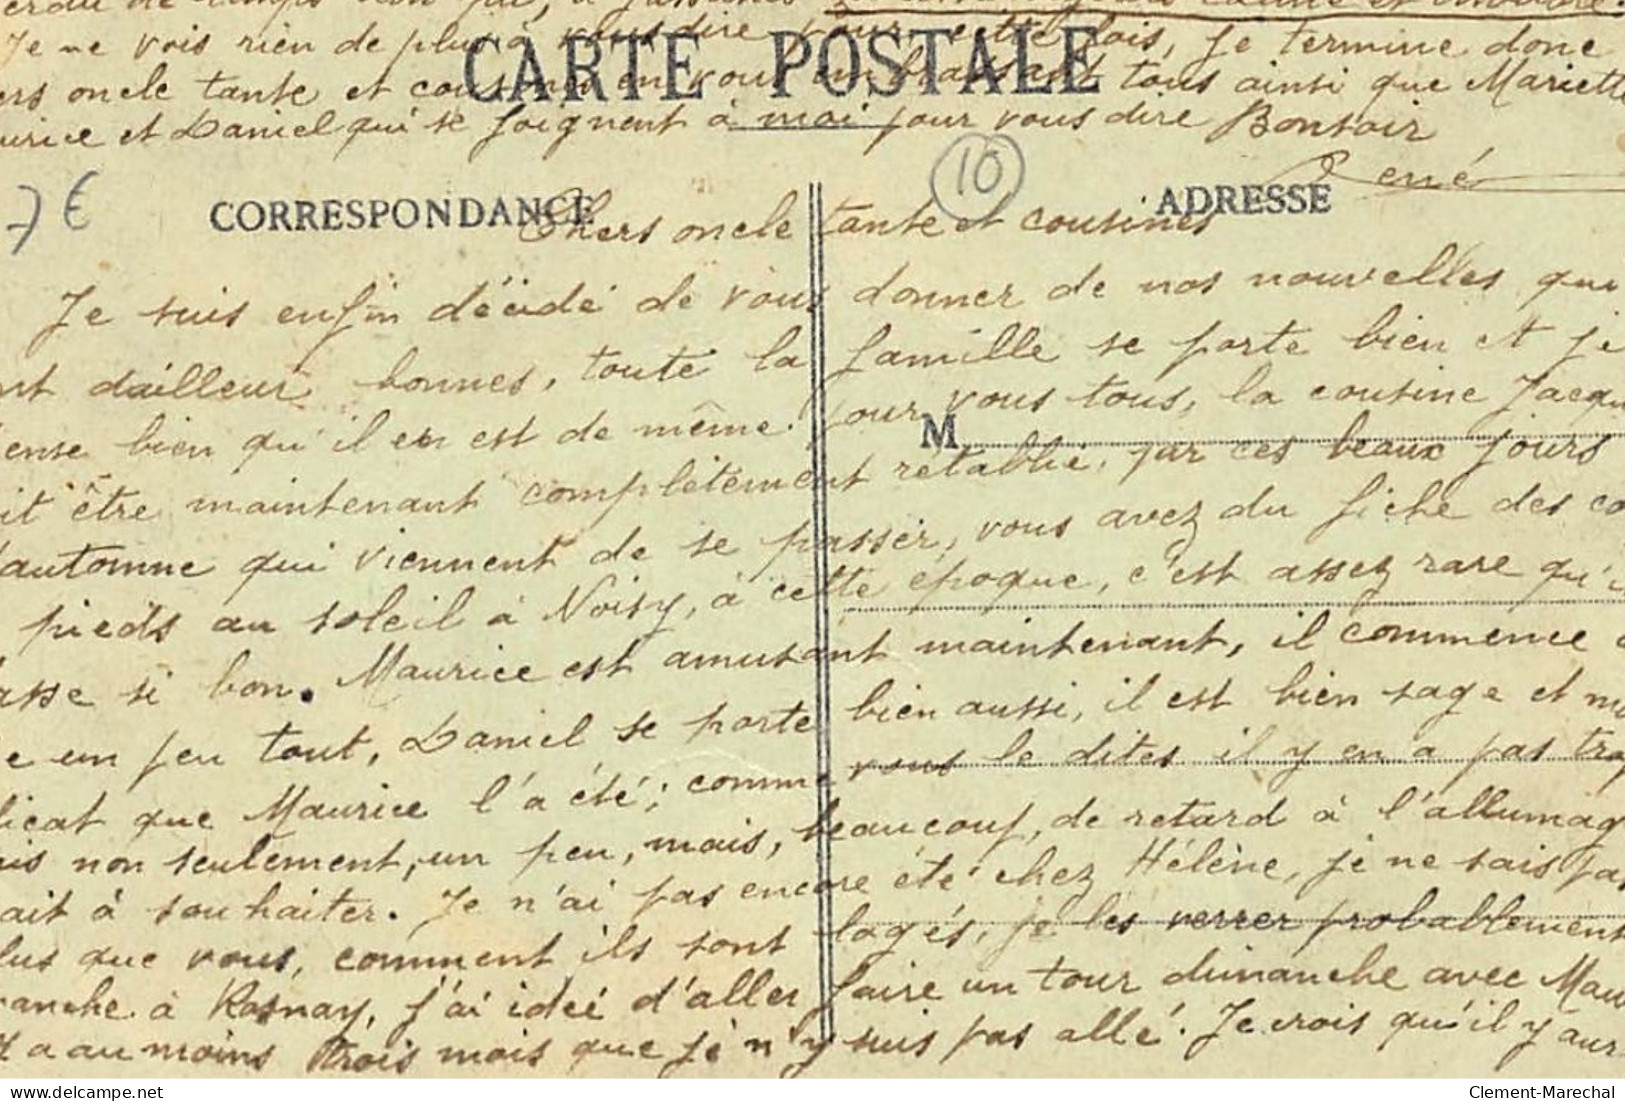 perdu de temps
Je ne vois rien de plus à vous dire pour cette fois, je termine donc
CARTE POSTALE
ers oncle tante et cousines en vous embrassant tous ainsi que Mariette
urice et Daniel qui se joignent à moi pour vous dire Bonsoir
René
10
7€
CORRESPONDANCE
ADRESSE
Chers oncle tante et cousines
Je suis enfin décidé de vous donner de nos nouvelles qui
nt dailleur bonnes, toute la famille se porte bien et je
ense bien qu'il en est de même pour vous tous, la cousine Jacqu
M
it être maintenant complètement rétablie, par ces beaux jours
'automne qui viennent de se passer, vous avez du fiche des co
pieds au soleil à Noisy, à cette époque, c'est assez rare qu'i
asse si bon. Maurice est amusant maintenant, il commence à
e un peu tout, Daniel se porte bien aussi, il est bien sage et m
licat que Maurice l'a été; comme vous le dites il y en a pas trop
is non seulement, un peu, mais, beaucoup, de retard à l'allumag
ait à souhaiter. Je n'ai pas encore été chez Hélène, je ne sais pas
lus que vous, comment ils sont logés, je les verrer probablement
manche à Rosnay, j'ai idéé d'aller faire un tour dimanche avec Mau
a au moins trois mois que je n'y suis pas allé. Je crois qu'il y aur
delcampe.net
Clement-Marechal